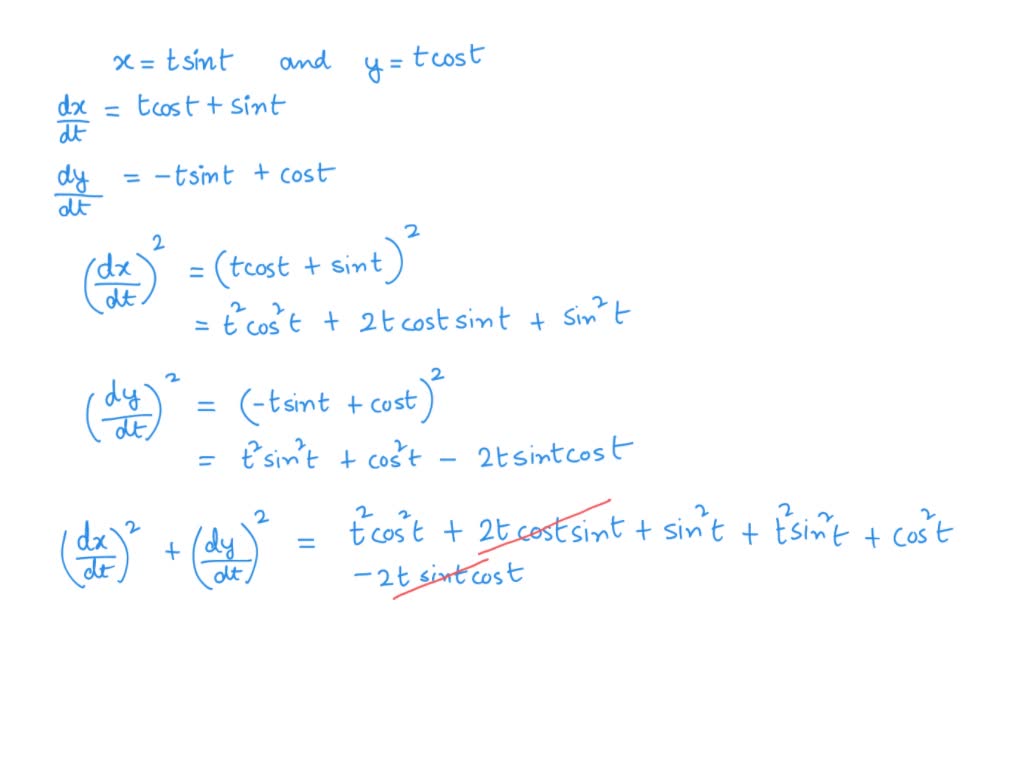 x = tsint and y = tcost
dx/dt = tcost + sint
dy/dt = -tsint + cost
(dx/dt)² = (tcost + sint)²
= t²cos²t + 2tcostsint + sin²t
(dy/dt)² = (-tsint + cost)²
= t²sin²t + cos²t - 2tsintcost
(dx/dt)² + (dy/dt)² = t²cos²t + 2tcostsint + sin²t + t²sin²t + cos²t
-2tsintcost